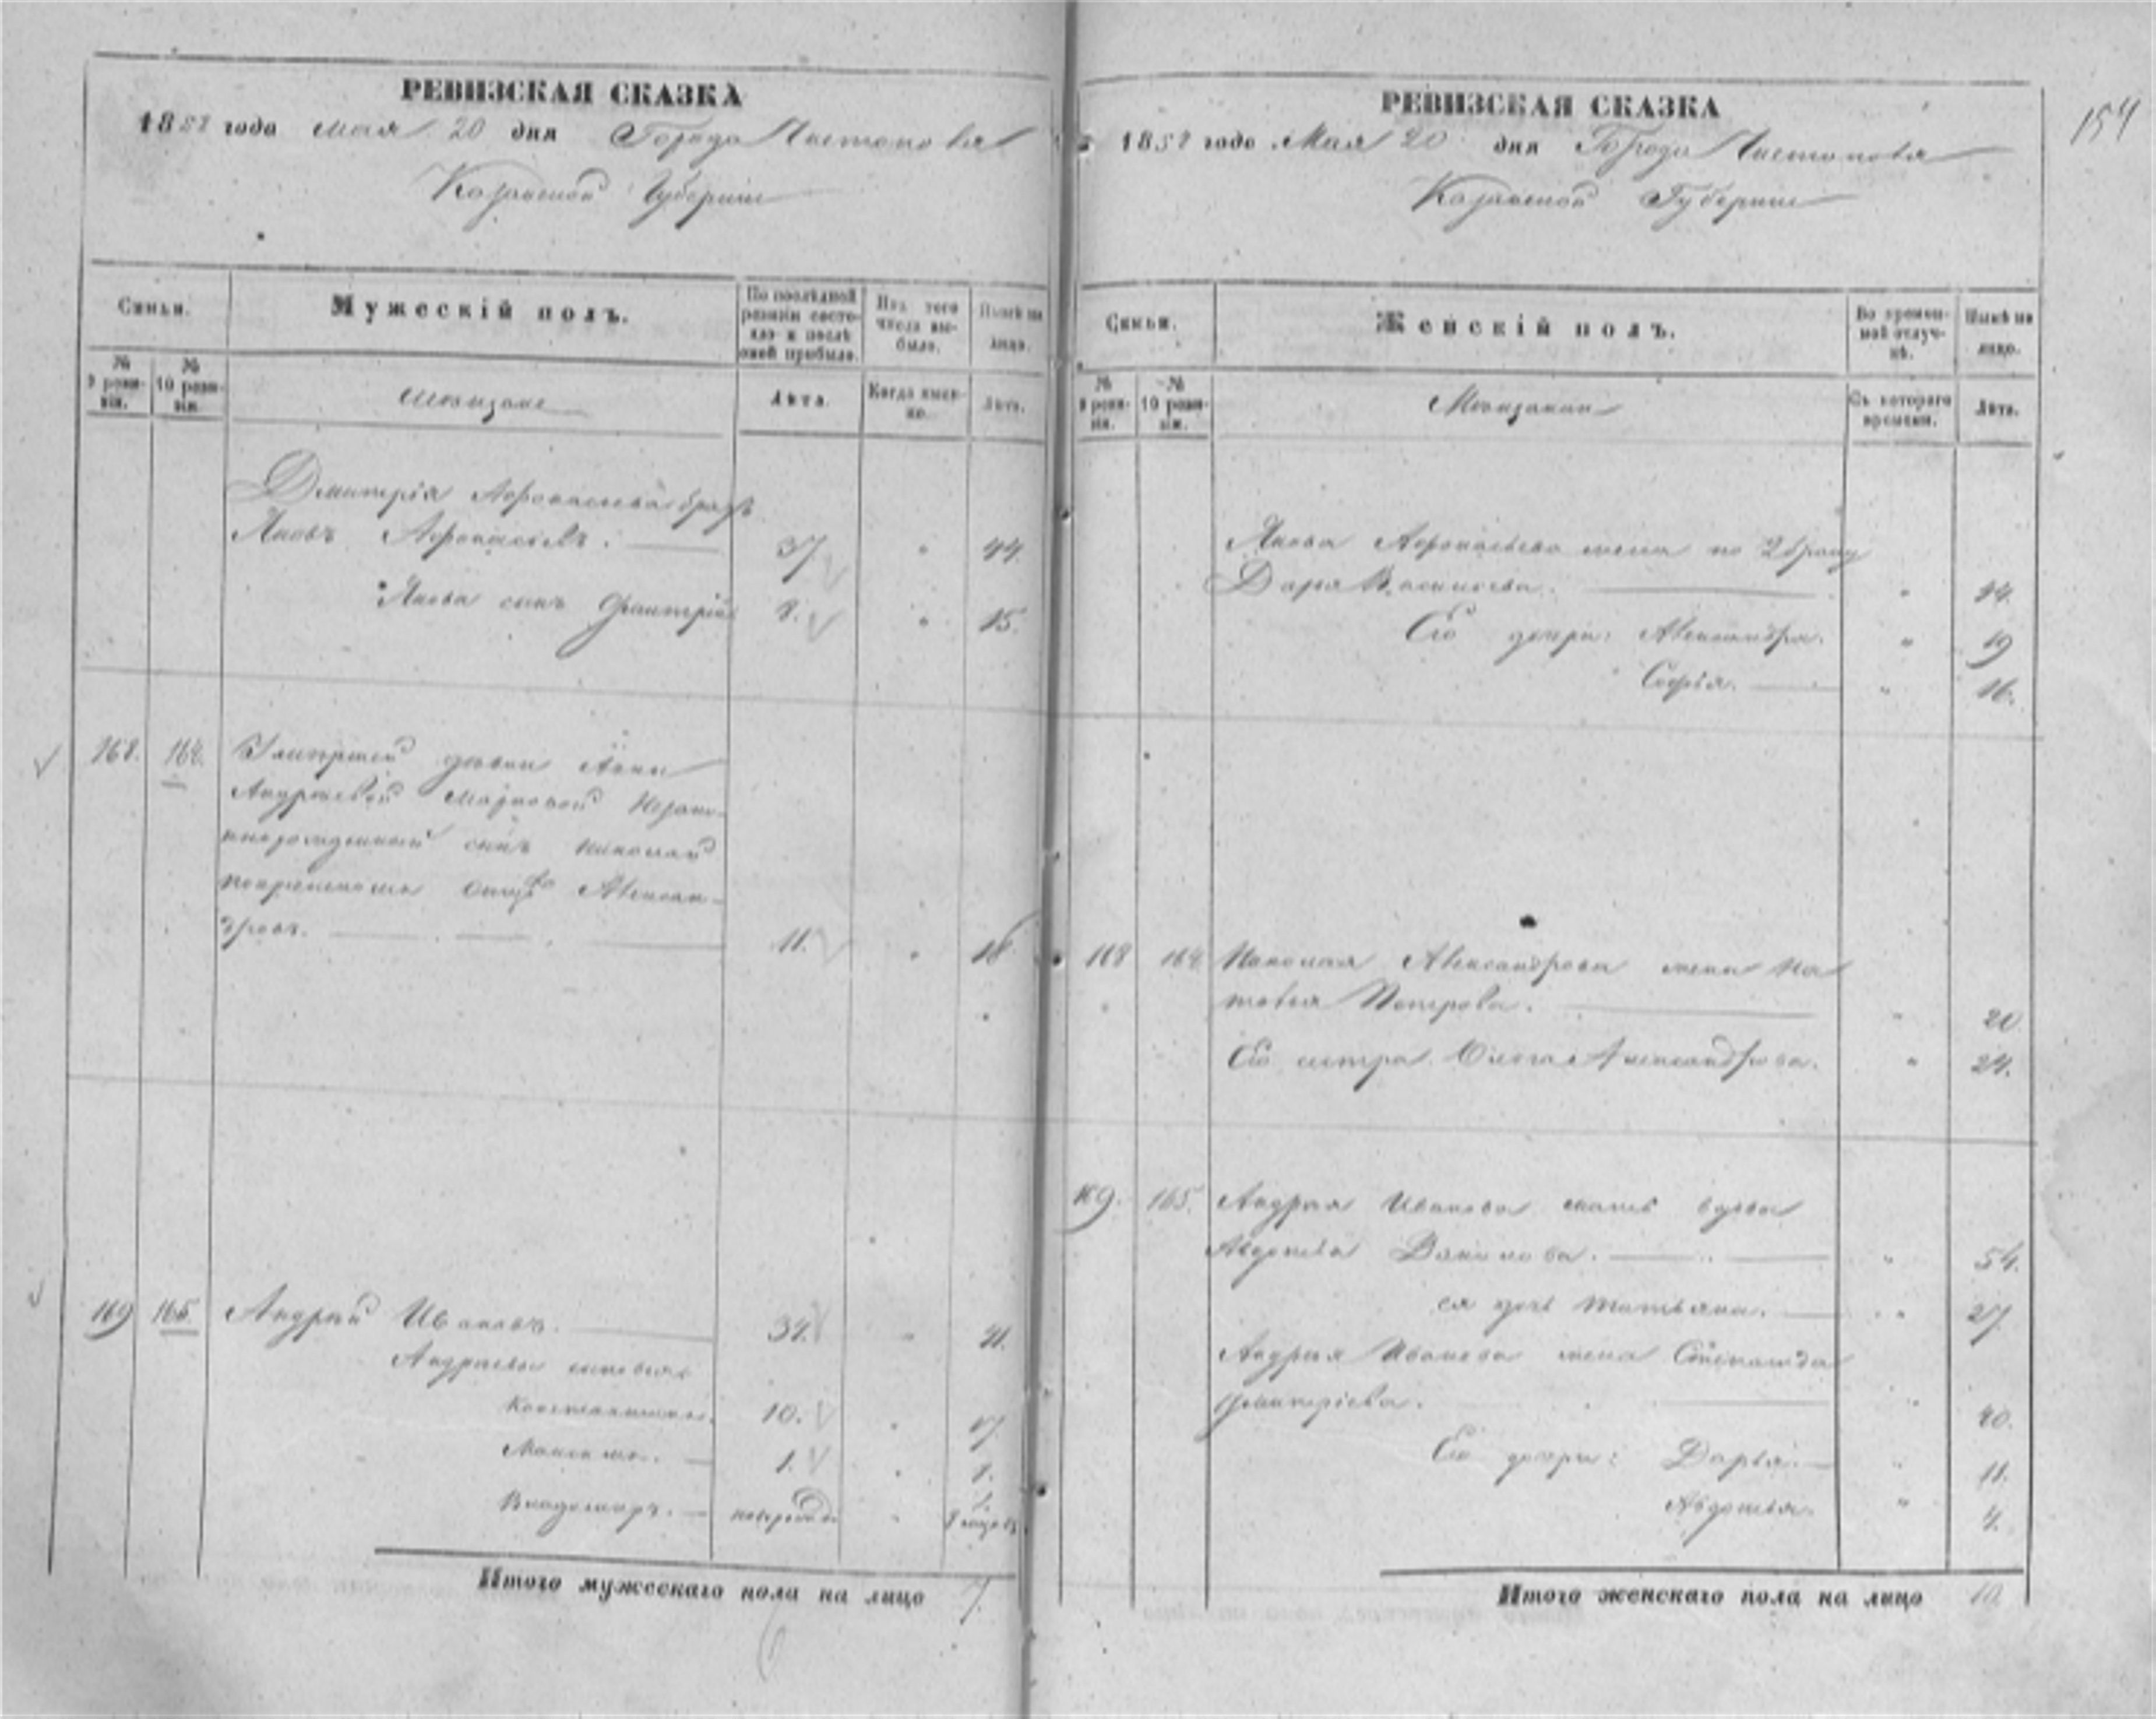 РЕВИЗСКАЯ СКАЗКА
1858 года Мая 20 дня Города Чистополя
Казанской Губернии
Семьи.
Мужескій полъ.
По послѣдней ревизіи состояло и послѣ оной прибыло.
Изъ того числа выбыло.
Нынѣ на лицо.
№ 9 ревизіи.
№ 10 ревизіи.
Мѣщане
Лѣта.
Когда именно.
Лѣта.
Дмитрія Афонасьева братъ
Яковъ Афонасьевъ. 37 " 44.
Якова сынъ Дмитрій 8. " 15.
168. 164. Умершей дѣвки Анны
Андреевой Незако-
ннорожденный сынъ Николай
покрестному Отцу Алексан-
дровъ. 11. " 18.
169 165. Андрей Ивановъ. 34. " 41.
Андреевы сыновья:
Константинъ. 10. " 17.
Максимъ. 1. " 8.
Владимиръ. "
Итого мужескаго пола на лицо 7.
РЕВИЗСКАЯ СКАЗКА
154
1858 года Мая 20 дня Города Чистополя
Казанской Губернии
Семьи.
Женскій полъ.
Во временной отлучкѣ.
Нынѣ на лицо.
№ 9 ревизіи.
№ 10 ревизіи.
Мѣщанки
Съ котораго времени.
Лѣта.
Якова Афонасьева жена по 2 браку
Дарья Васильева. " 44.
Его дочери: Александра. " 19
Софья. " 16.
168 164 Николая Александрова жена На
талья Петрова. " 20
Его сестра Александрова. " 24.
169. 165. Андрея Иванова мать вдова
Авдотья " 54.
ея дочь Татьяна. " 27
Андрея Иванова жена Степанида
Дмитріева. " 40.
Его дочери: Дарья. " 11.
Авдотья. " 4.
Итого женскаго пола на лицо 10